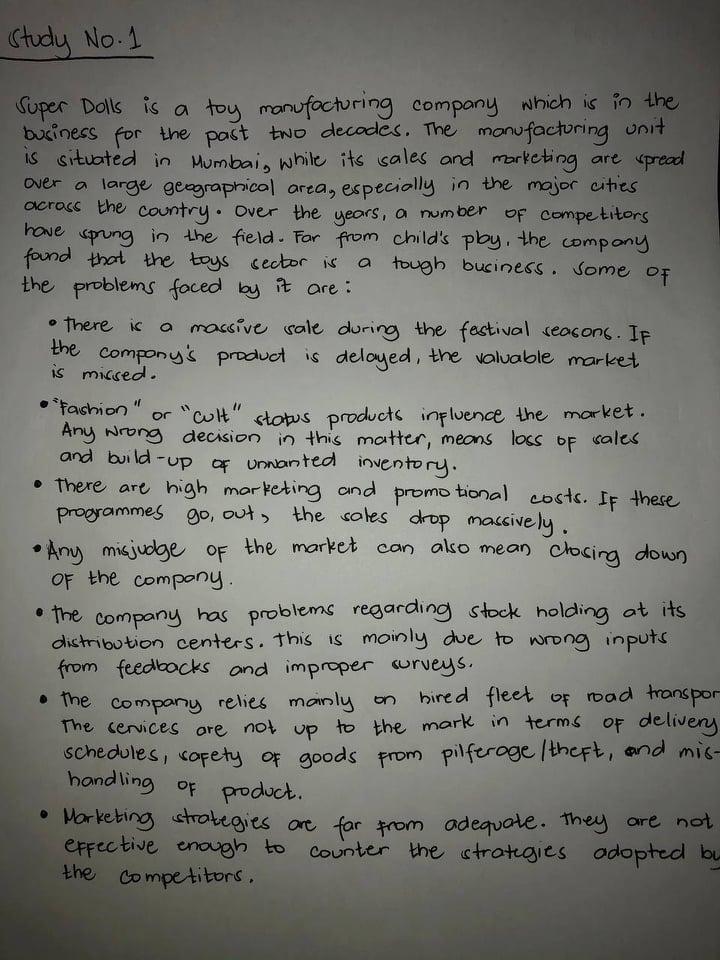 Study No.1
Super Dolls is a toy manufacturing company which is in the
business for the past two decades. The manufacturing unit
is situated in Mumbai, while its sales and marketing are spread
over a large geographical area, especially in the major cities
across the country. Over the years, a number of competitors
have sprung in the field. Far from child's play, the company
found that the toys sector is a tough business. Some of
the problems faced by it are:
• There is a massive sale during the festival seasons. If
the company's product is delayed, the valuable market
is missed.
• "Fashion" or "Cult" status products influence the market.
Any wrong decision in this matter, means loss of sales
and build-up of unwanted inventory.
• There are high marketing and promotional costs. If these
programmes go, out, the sales drop massively.
• Any misjudge of the market can also mean closing down
of the company.
• The company has problems regarding stock holding at its
distribution centers. This is mainly due to wrong inputs
from feedbacks and improper surveys.
• The company relies mainly on hired fleet of road transpor
The services are not up to the mark in terms of delivery
schedules, safety of goods from pilferage/theft, and mis-
handling of product.
• Marketing strategies are far from adequate. They are not
effective enough to counter the strategies adopted by
the competitors.